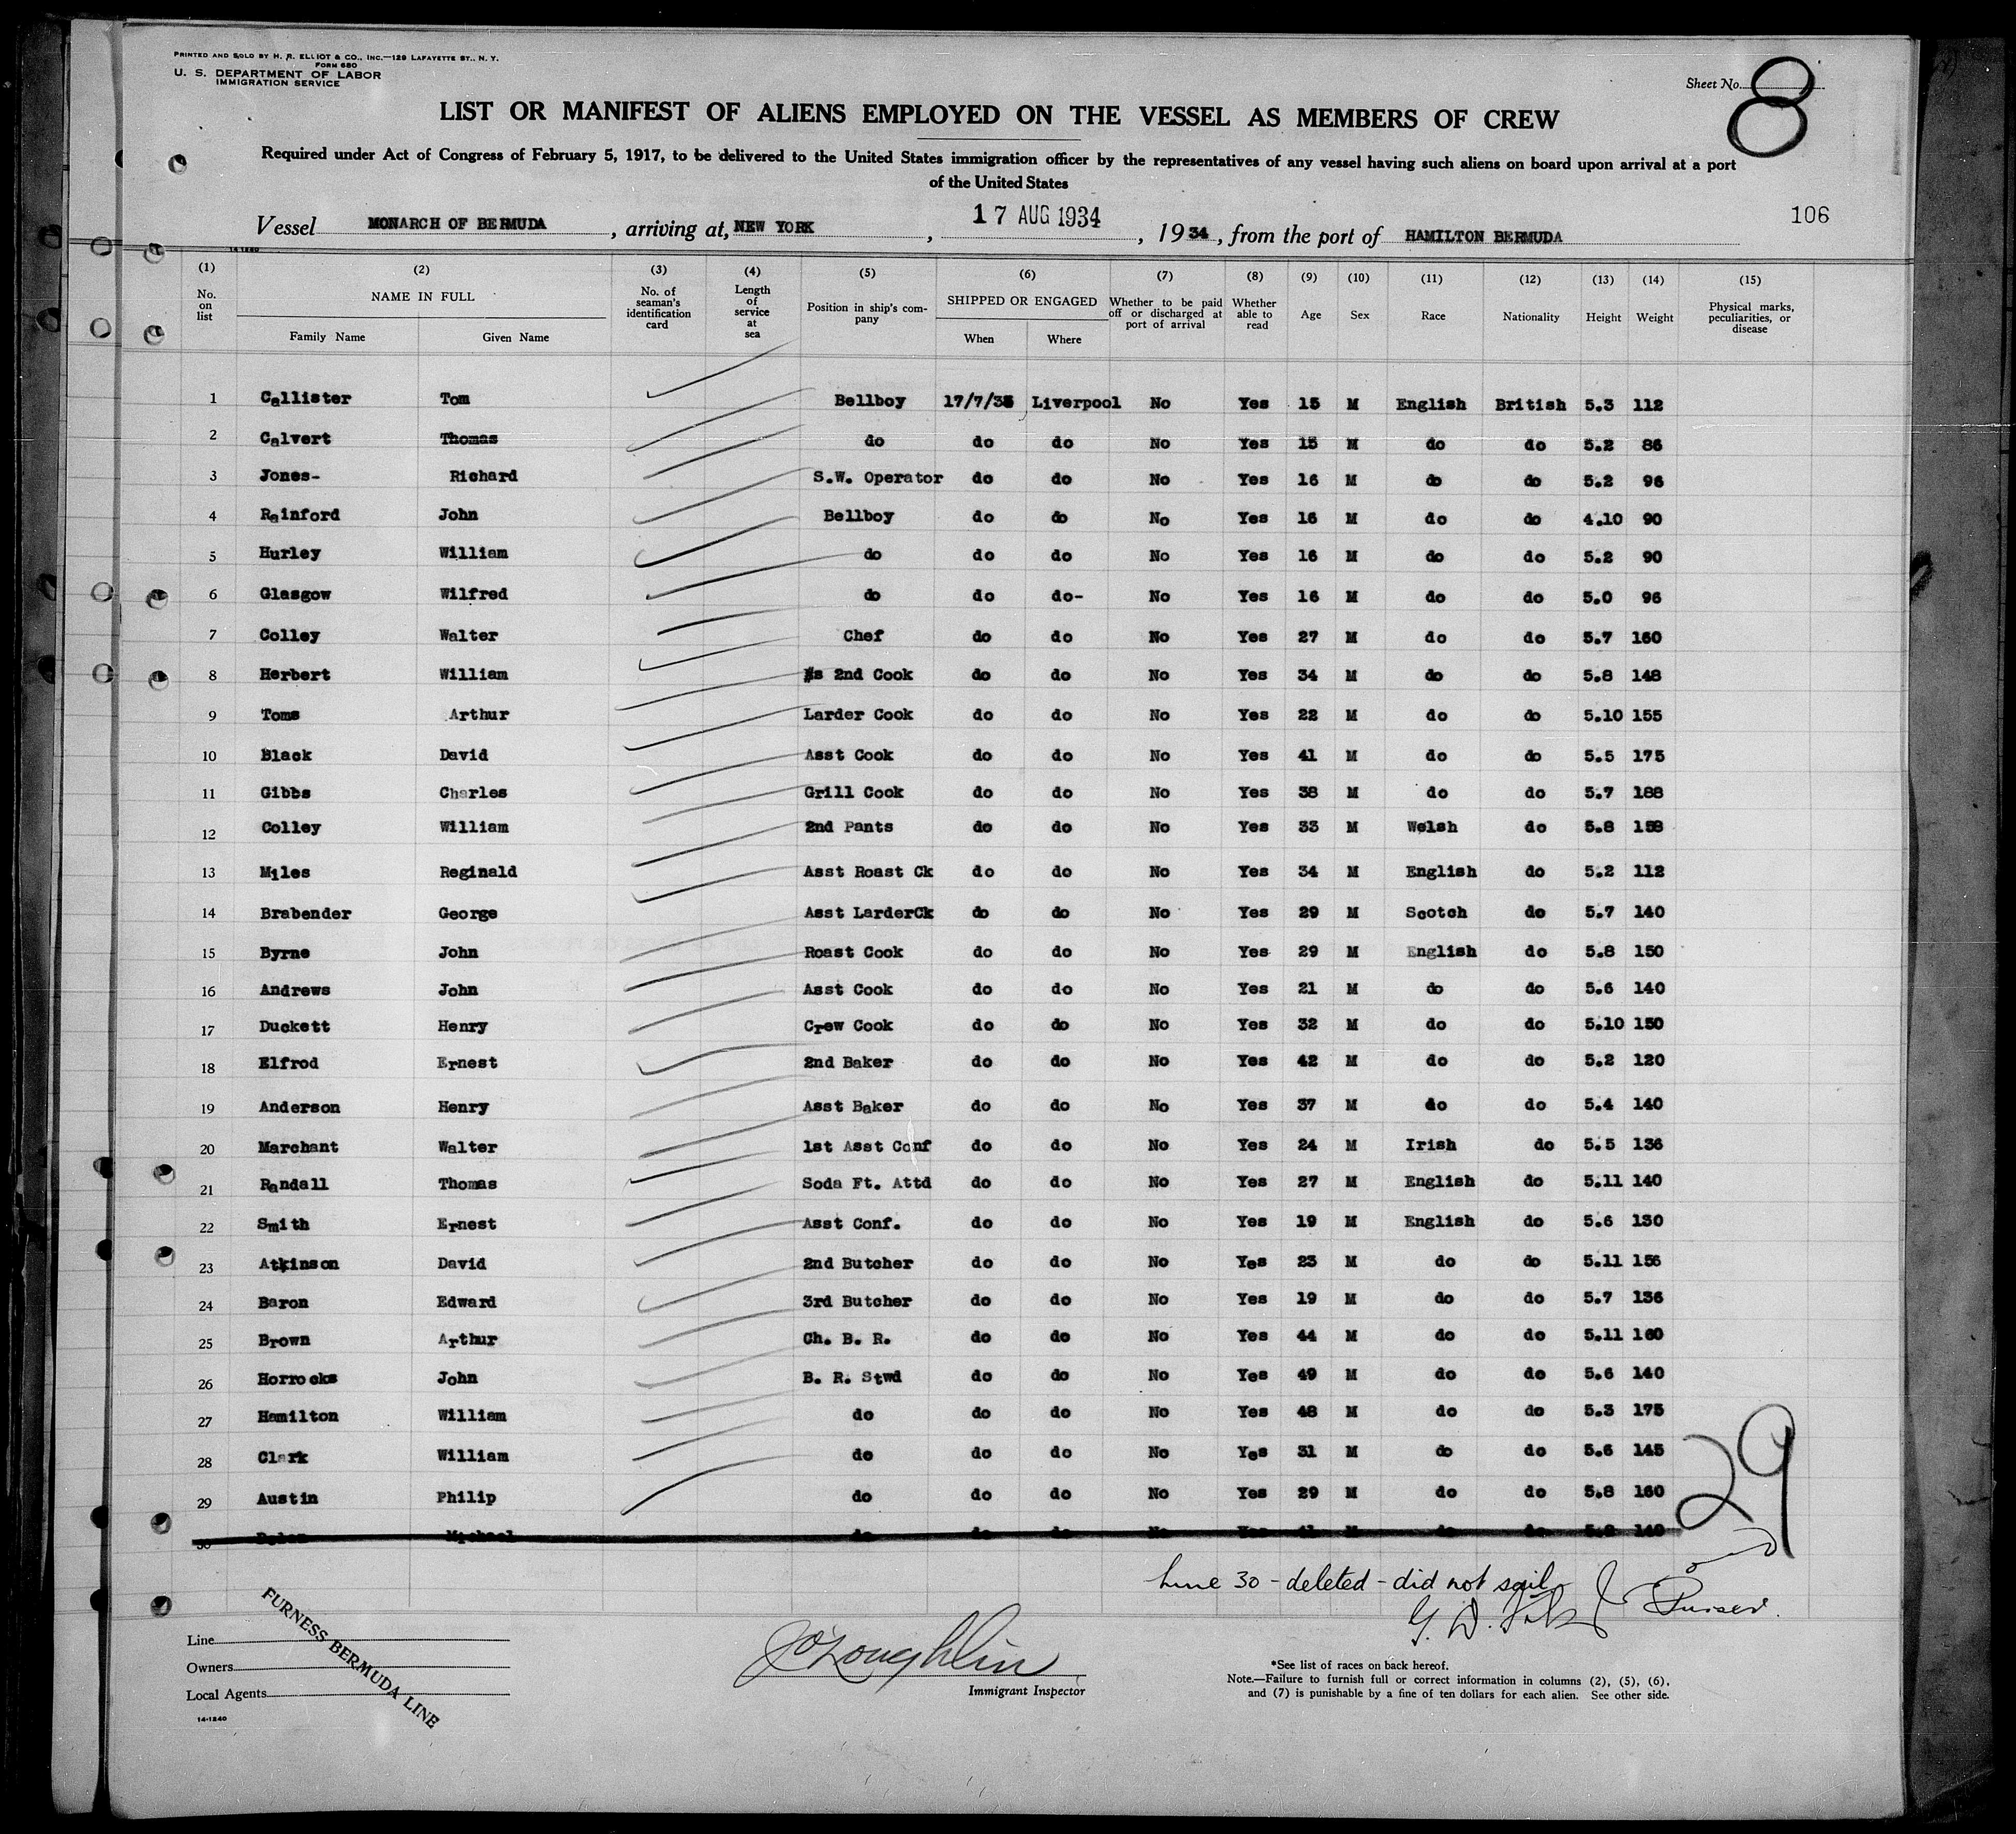 PRINTED AND SOLD BY H. R. ELLIOT & CO., INC.—129 LAFAYETTE ST., N. Y.
FORM 680
U. S. DEPARTMENT OF LABOR
IMMIGRATION SERVICE
Sheet No. 8
LIST OR MANIFEST OF ALIENS EMPLOYED ON THE VESSEL AS MEMBERS OF CREW
Required under Act of Congress of February 5, 1917, to be delivered to the United States immigration officer by the representatives of any vessel having such aliens on board upon arrival at a port
of the United States
Vessel MONARCH OF BERMUDA, arriving at, NEW YORK, 17 AUG 1934, 1934, from the port of HAMILTON BERMUDA
106
14-1240
(1) No. on list
(2) NAME IN FULL Family Name Given Name
(3) No. of seaman's identification card
(4) Length of service at sea
(5) Position in ship's company
(6) SHIPPED OR ENGAGED When Where
(7) Whether to be paid off or discharged at port of arrival
(8) Whether able to read
(9) Age
(10) Sex
(11) Race
(12) Nationality
(13) Height
(14) Weight
(15) Physical marks, peculiarities, or disease
1 Callister Tom Bellboy 17/7/35 Liverpool No Yes 15 M English British 5.3 112
2 Calvert Thomas do do do No Yes 15 M do do 5.2 86
3 Jones- Richard S.W. Operator do do No Yes 16 M do do 5.2 96
4 Rainford John Bellboy do do No Yes 16 M do do 4.10 90
5 Hurley William do do do No Yes 16 M do do 5.2 90
6 Glasgow Wilfred do do do- No Yes 16 M do do 5.0 96
7 Colley Walter Chef do do No Yes 27 M do do 5.7 160
8 Herbert William s 2nd Cook do do No Yes 34 M do do 5.8 148
9 Toms Arthur Larder Cook do do No Yes 22 M do do 5.10 155
10 Black David Asst Cook do do No Yes 41 M do do 5.5 175
11 Gibbs Charles Grill Cook do do No Yes 38 M do do 5.7 188
12 Colley William 2nd Pants do do No Yes 33 M Welsh do 5.8 158
13 Miles Reginald Asst Roast Ck do do No Yes 34 M English do 5.2 112
14 Brabender George Asst LarderCk do do No Yes 29 M Scotch do 5.7 140
15 Byrne John Roast Cook do do No Yes 29 M English do 5.8 150
16 Andrews John Asst Cook do do No Yes 21 M do do 5.6 140
17 Duckett Henry Crew Cook do do No Yes 32 M do do 5.10 150
18 Elfrod Ernest 2nd Baker do do No Yes 42 M do do 5.2 120
19 Anderson Henry Asst Baker do do No Yes 37 M do do 5.4 140
20 Marchant Walter 1st Asst Conf do do No Yes 24 M Irish do 5.5 136
21 Randall Thomas Soda Ft. Attd do do No Yes 27 M English do 5.11 140
22 Smith Ernest Asst Conf. do do No Yes 19 M English do 5.6 130
23 Atkinson David 2nd Butcher do do No Yes 23 M do do 5.11 156
24 Baron Edward 3rd Butcher do do No Yes 19 M do do 5.7 136
25 Brown Arthur Ch. B. R. do do No Yes 44 M do do 5.11 160
26 Horrocks John B. R. Stwd do do No Yes 49 M do do 5.6 140
27 Hamilton William do do do No Yes 48 M do do 5.3 175
28 Clark William do do do No Yes 31 M do do 5.6 145
29 Austin Philip do do do No Yes 29 M do do 5.8 160
30 Michael do do do No Yes 41 M do do 140
29
Line 30 - deleted - did not sail
G. D. Purser.
Line
Owners
Local Agents
FURNESS BERMUDA LINE
14-1240
JO'Loughlin
Immigrant Inspector
*See list of races on back hereof.
Note.—Failure to furnish full or correct information in columns (2), (5), (6),
and (7) is punishable by a fine of ten dollars for each alien. See other side.